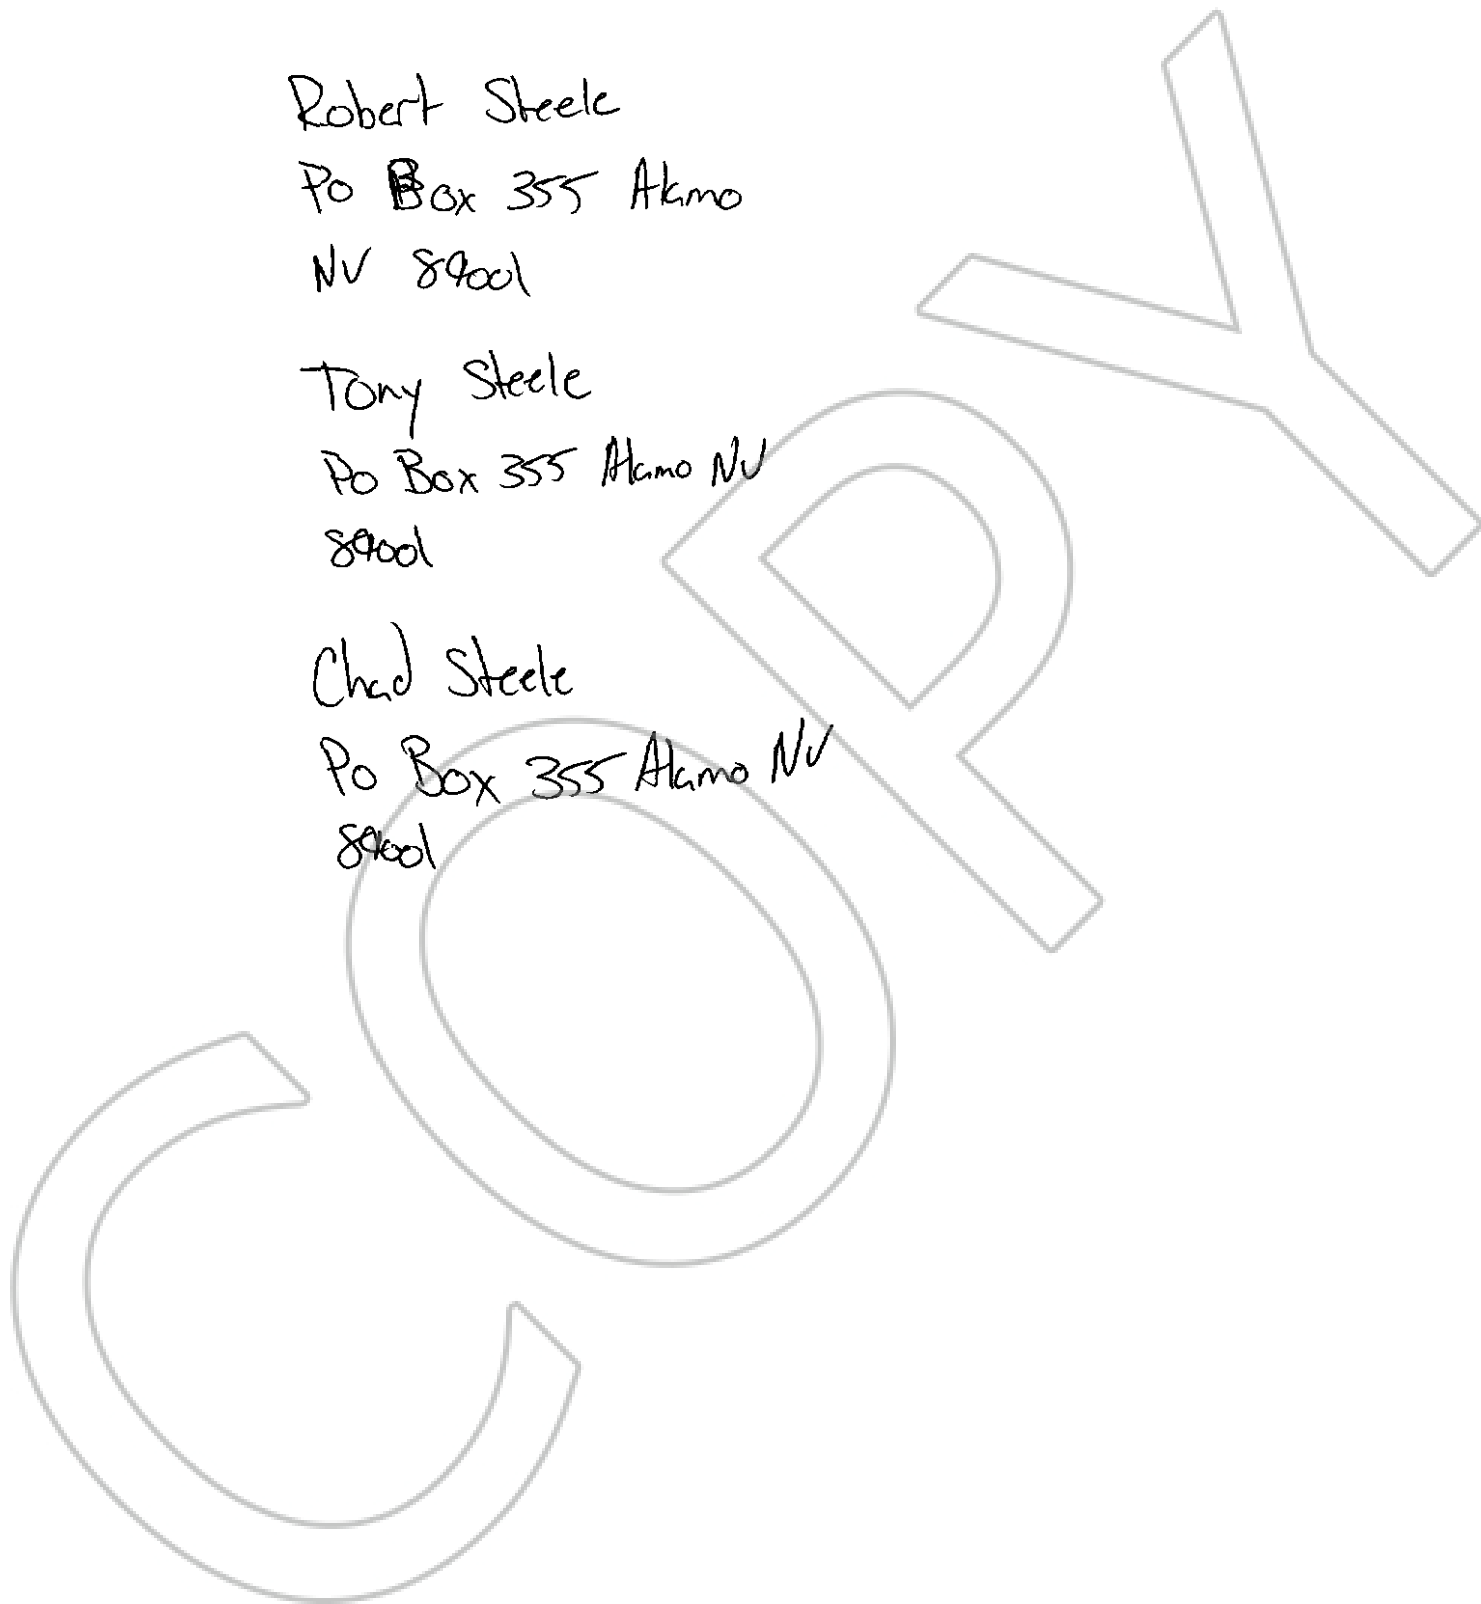 Robert Steele
Po Box 355 Alamo
NV 89001
Tony Steele
Po Box 355 Alamo NV
89001
Chad Steele
Po Box 355 Alamo NV
89001
COPY